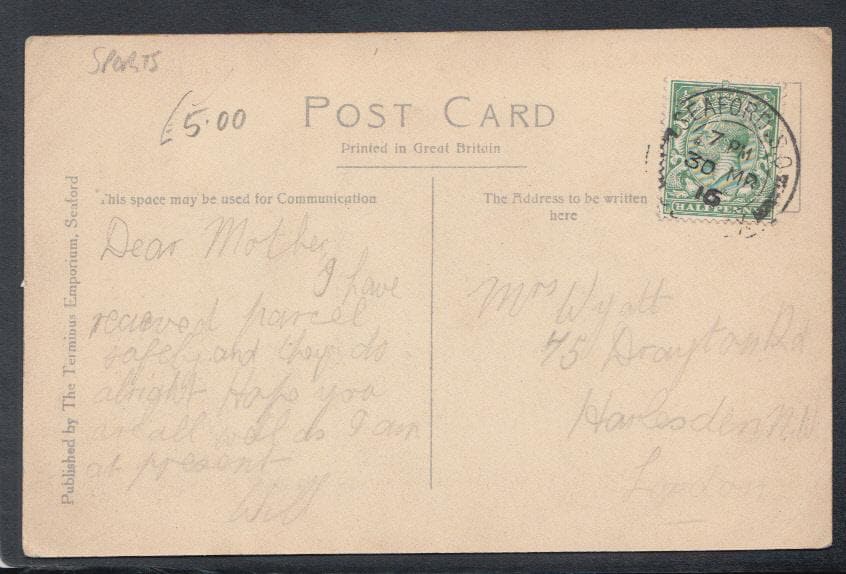 SPORTS
£5.00
POST CARD
Printed in Great Britain
This space may be used for Communication
The Address to be written
here
SEAFORD. S.O.
7 PM
30 MR
16
HALFPENNY
Published by The Terminus Emporium, Seaford
Dear Mother
I have
recieved parcel
safely and they do
alright Hope you
are all well as I am
at present
Will
Mrs Wyatt
75 Drayton Rd
Harlesden N.W
London